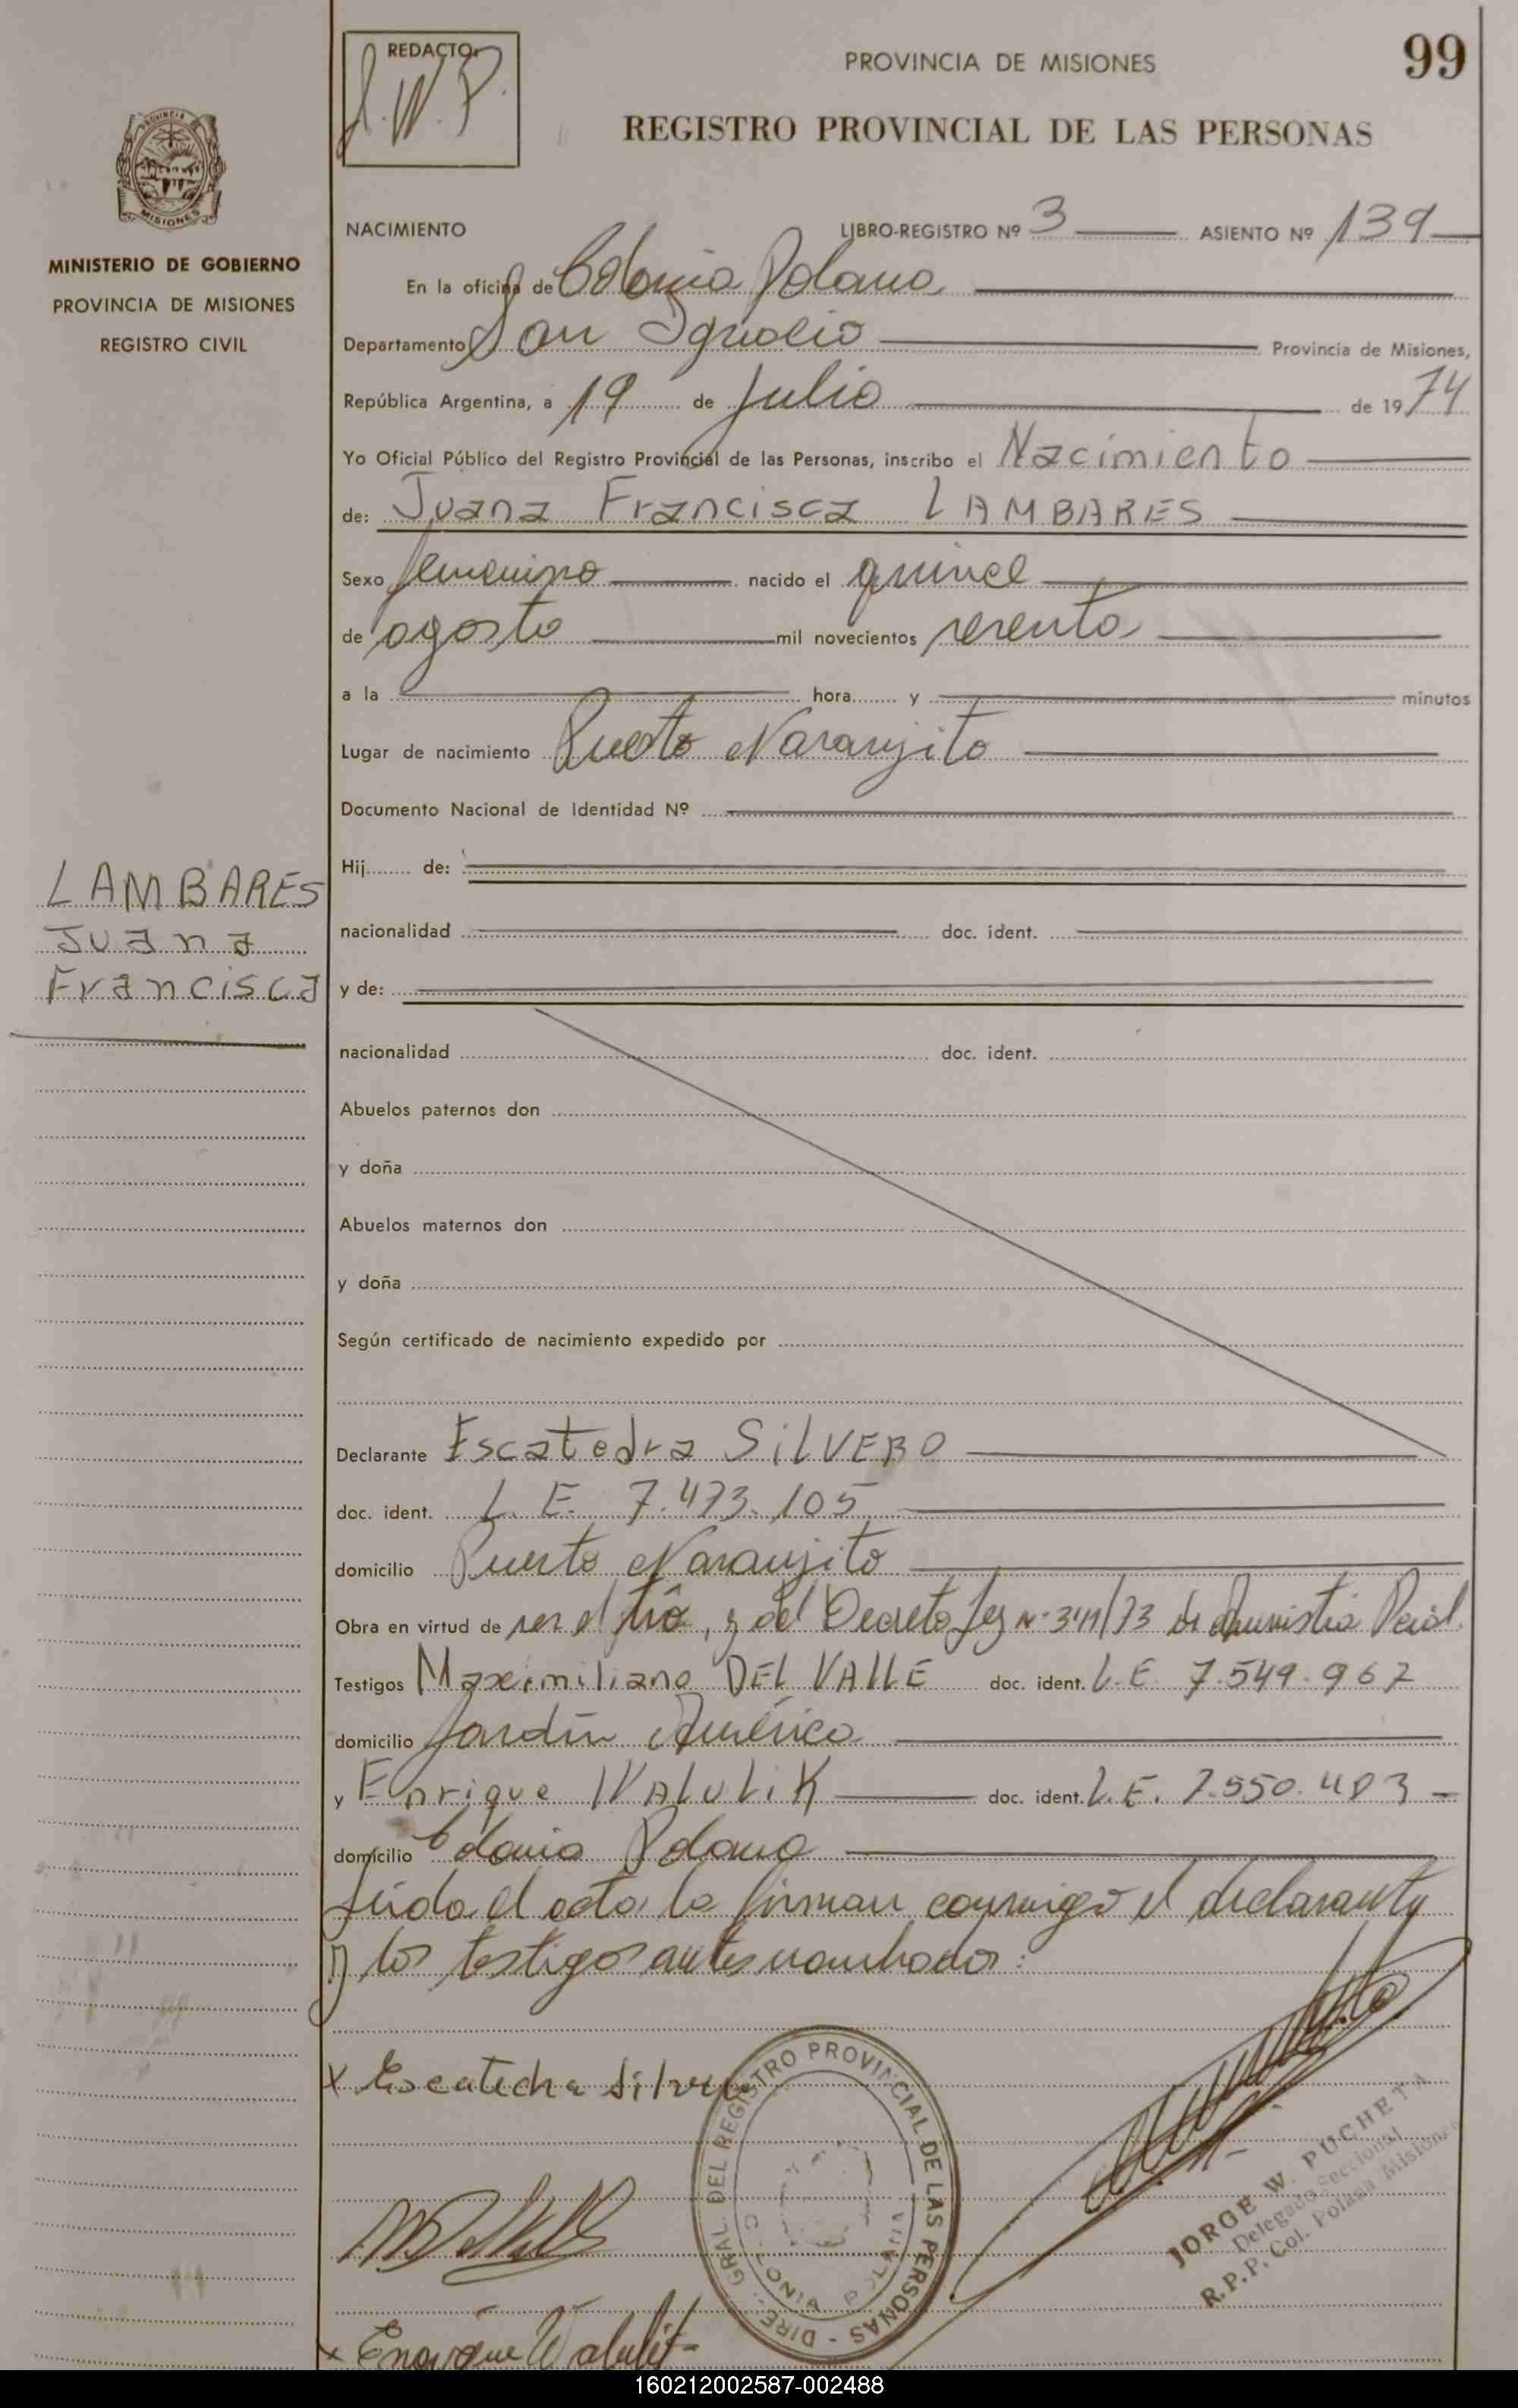 REDACTO:
J. W. P.
PROVINCIA DE MISIONES
99
REGISTRO PROVINCIAL DE LAS PERSONAS
PROVINCIA
MISIONES
MINISTERIO DE GOBIERNO
PROVINCIA DE MISIONES
REGISTRO CIVIL
NACIMIENTO LIBRO-REGISTRO Nº 3 ASIENTO Nº 139
En la oficina de Colonia Polana
Departamento San Ignacio Provincia de Misiones,
República Argentina, a 19 de Julio de 1974
Yo Oficial Público del Registro Provincial de las Personas, inscribo el Nacimiento
de: Juana Francisca LAMBARES
Sexo femenino nacido el quince
de agosto mil novecientos sesenta
a la hora y minutos
Lugar de nacimiento Puerto Naranjito
Documento Nacional de Identidad Nº
Hij de:
LAMBARES
Juana
Francisca
nacionalidad doc. ident.
y de:
nacionalidad doc. ident.
Abuelos paternos don
y doña
Abuelos maternos don
y doña
Según certificado de nacimiento expedido por
Declarante Escatedra SILVERO
doc. ident. L. E. 7.473.105
domicilio Puerto Naranjito
Obra en virtud de ser el tío, y del Decreto Ley Nº de Amnistia
Testigos Maximiliano DEL VALLE doc. ident. L.E. 7.549.967
domicilio Jardín América
y Enrique WALULIK doc. ident. L.E. 7.550.403
domicilio Colonia Polana
Leída el acta la firman conmigo el declarante
y los testigos antes nombrados:
x Escatedra Silvero
DIRE. GRAL DEL REGISTRO PROVINCIAL DE LAS PERSONAS
COLONIA POLANA
JORGE W. PUCHETA
Delegado Seccional
R.P.P. Col. Polana Misiones
x Enrique Walulik
160212002587-002488